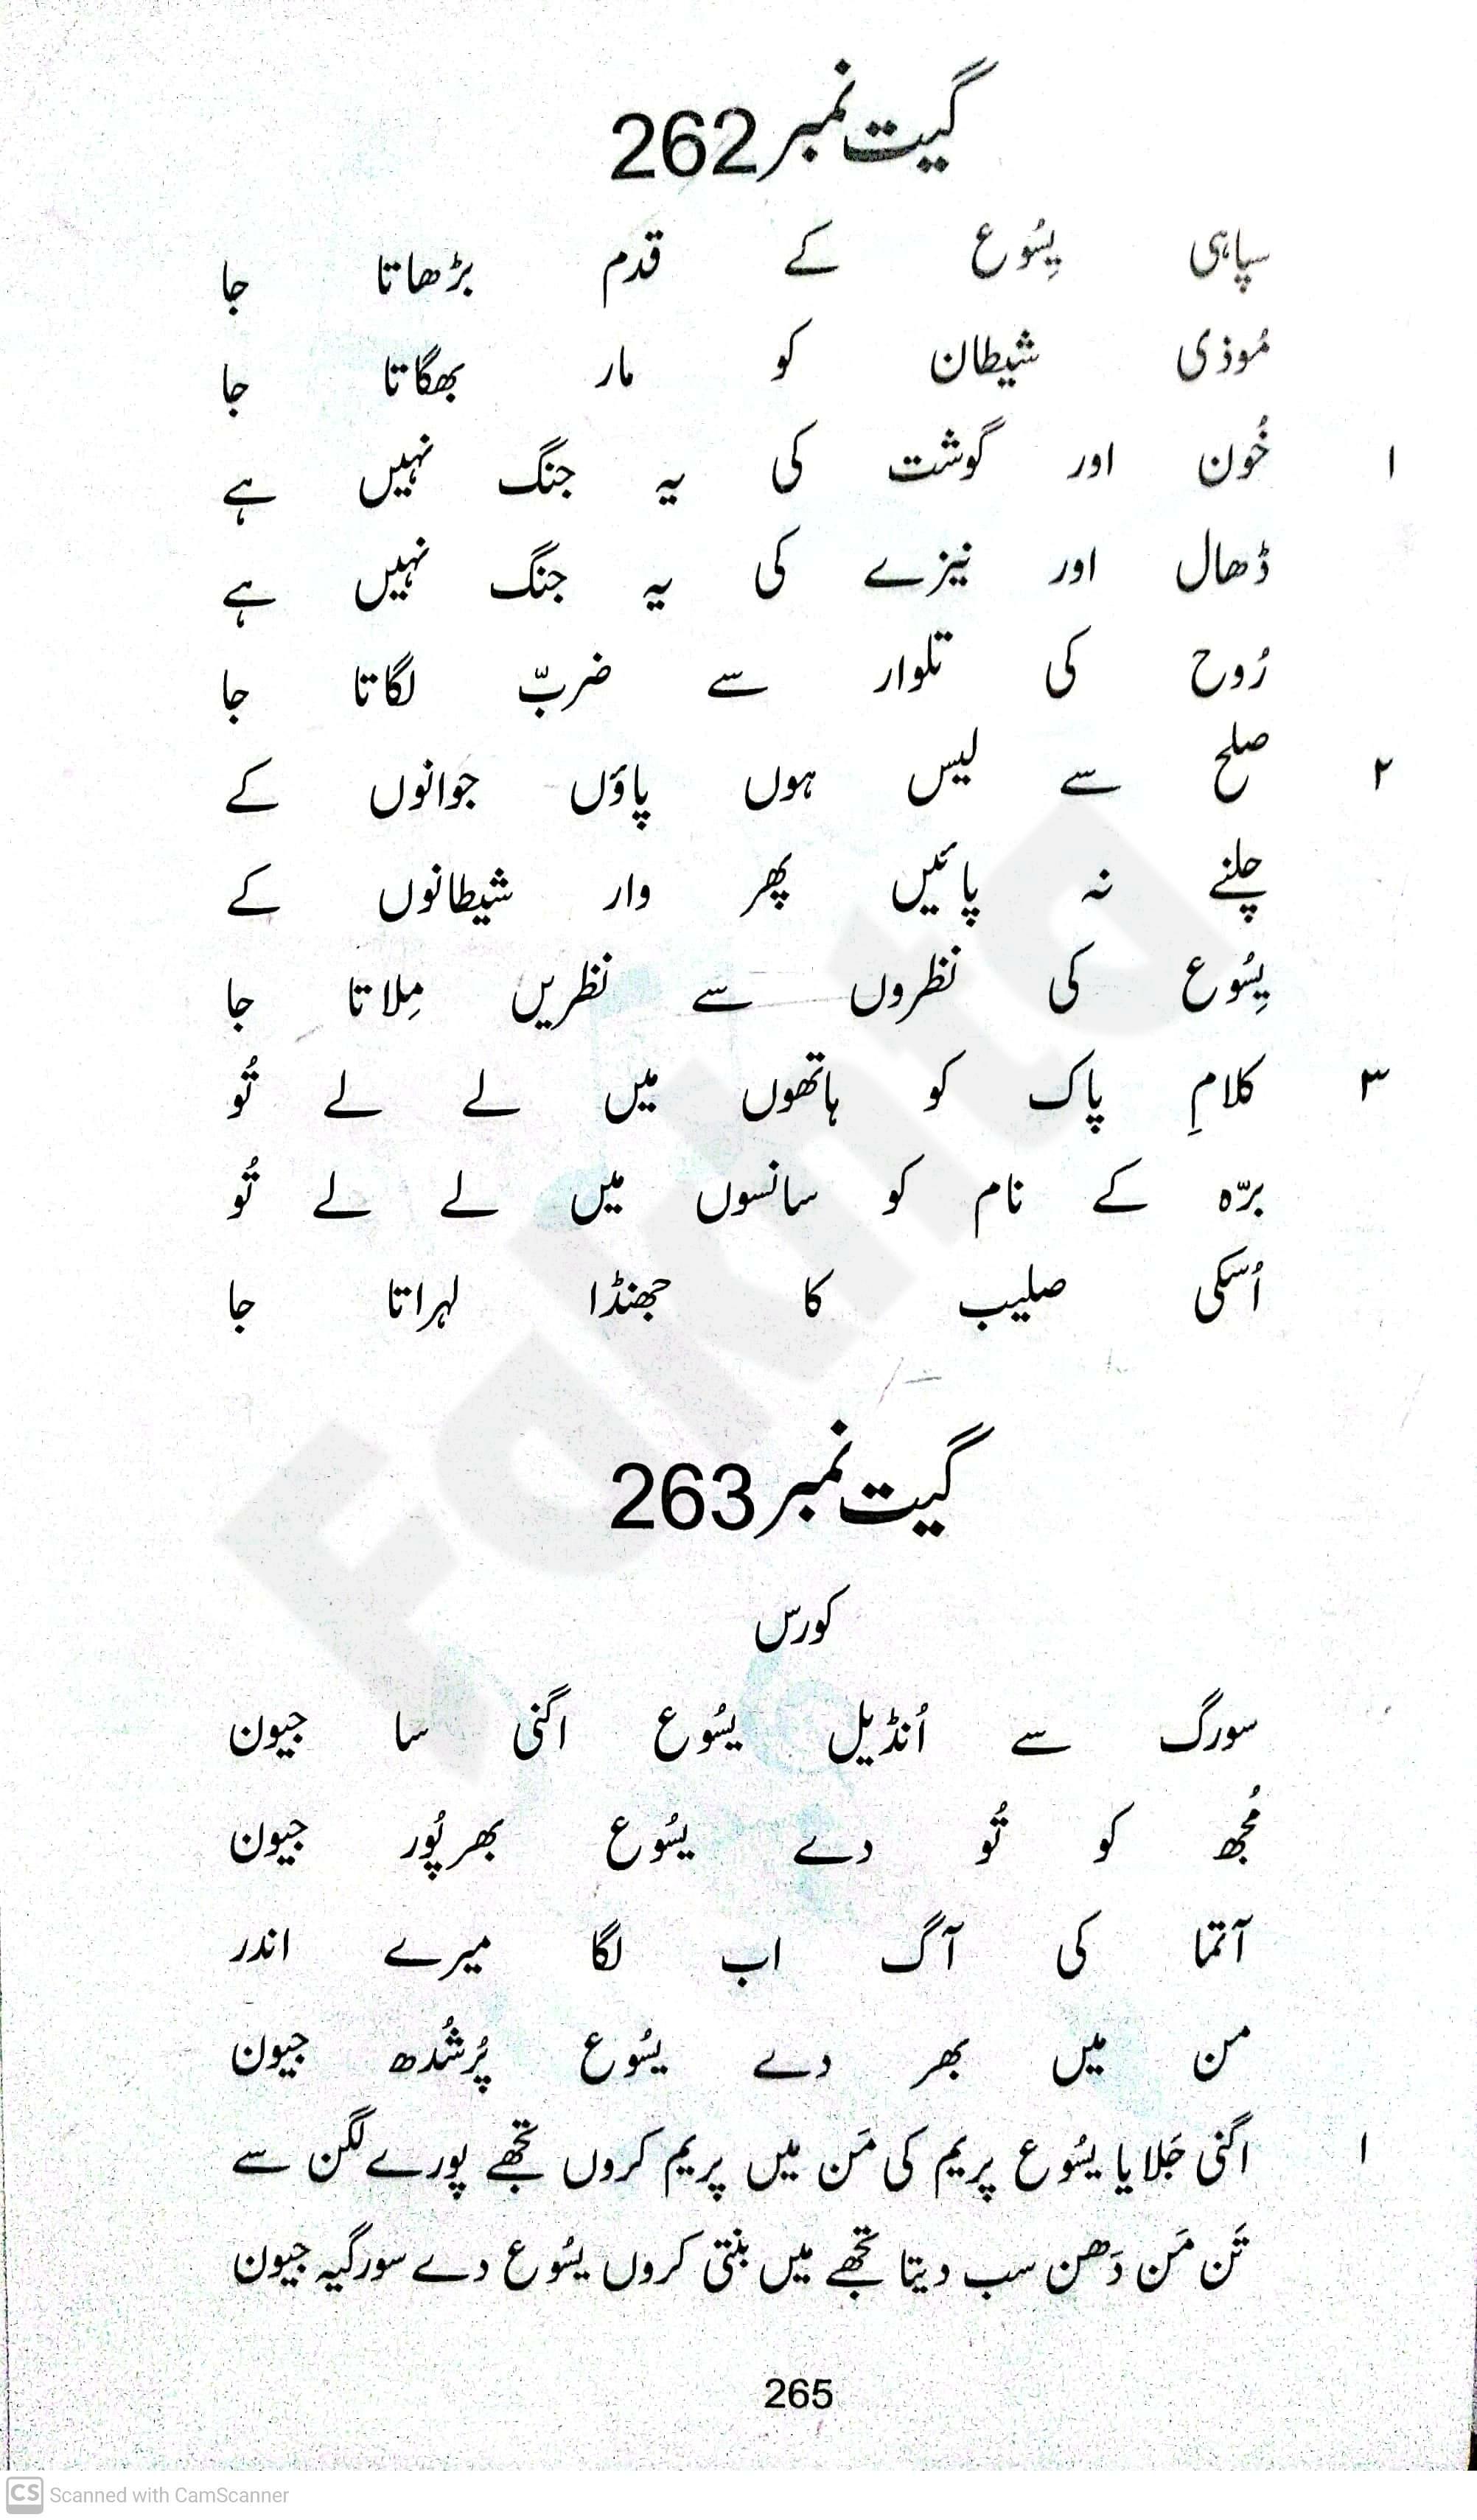 گیت نمبر 262
سپاہی یِسُوع کے قدم بڑھاتا جا
مُوذی شیطان کو مار بھگاتا جا
۱ خُون اور گوشت کی یہ جنگ نہیں ہے
ڈھال اور نیزے کی یہ جنگ نہیں ہے
رُوح کی تلوار سے ضربّ لگاتا جا
۲ صلح سے لیس ہوں پاؤں جوانوں کے
چلنے نہ پائیں پھر وار شیطانوں کے
یِسُوع کی نظروں سے نظریں مِلاتا جا
۳ کلامِ پاک کو ہاتھوں میں لے لے تُو
برّہ کے نام کو سانسوں میں لے لے تُو
اُسکی صلیب کا جھنڈا لہراتا جا
گیت نمبر 263
کورس
سورگ سے اُنڈیل یسُوع اگنی سا جیون
مُجھ کو تُو دے یسُوع بھرپُور جیون
آتما کی آگ اب لگا میرے اندر
من میں بھر دے یسُوع پُرشُدھ جیون
۱ اگنی جَلایا یسُوع پریم کی مَن میں پریم کروں تجھے پورے لگن سے
تَن مَن دَھن سب دیتا تجھے میں بنتی کروں یسُوع دے سورگیہ جیون
265
Fakhta
CS Scanned with CamScanner